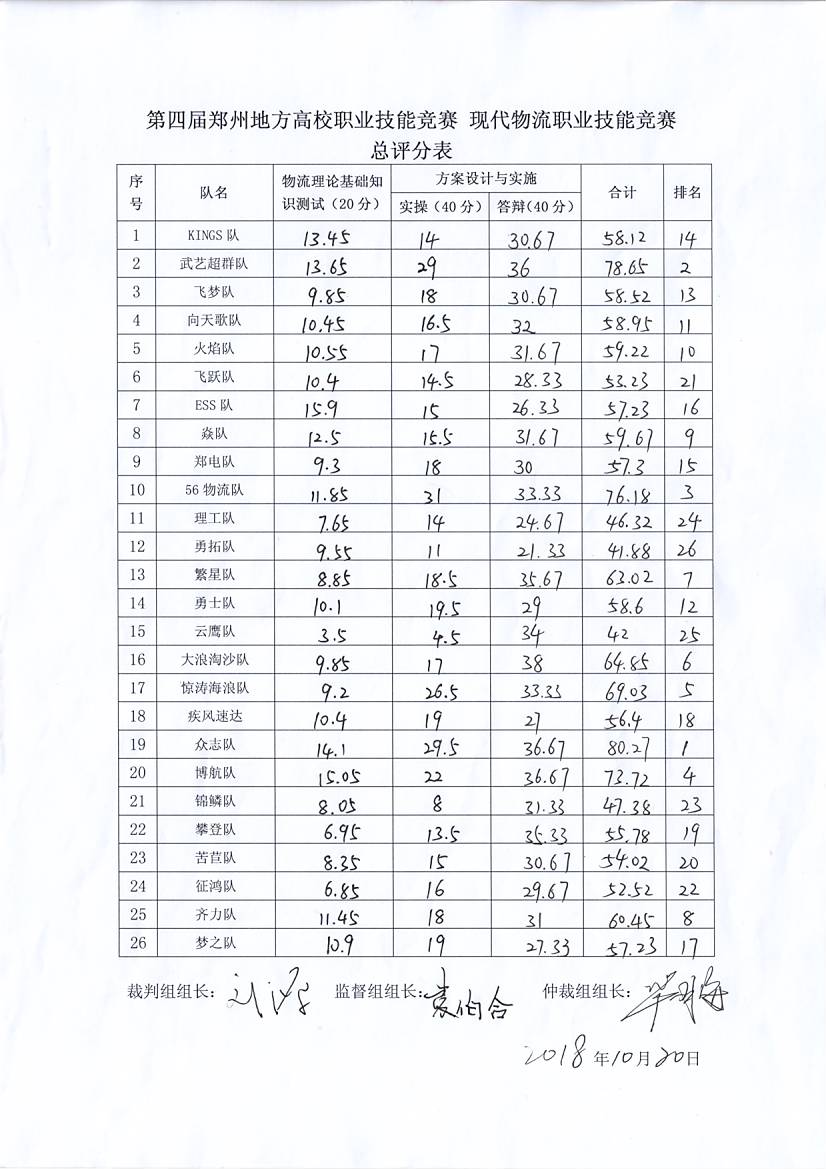 第四届郑州地方高校职业技能竞赛 现代物流职业技能竞赛
总评分表
序号 队名 物流理论基础知识测试（20 分） 方案设计与实施 实操（40 分） 答辩(40 分） 合计 排名
1 KINGS 队 13.45 14 30.67 58.12 14
2 武艺超群队 13.65 29 36 78.65 2
3 飞梦队 9.85 18 30.67 58.52 13
4 向天歌队 10.45 16.5 32 58.95 11
5 火焰队 10.55 17 31.67 59.22 10
6 飞跃队 10.4 14.5 28.33 53.23 21
7 ESS 队 15.9 15 26.33 57.23 16
8 焱队 12.5 15.5 31.67 59.67 9
9 郑电队 9.3 18 30 57.3 15
10 56 物流队 11.85 31 33.33 76.18 3
11 理工队 7.65 14 24.67 46.32 24
12 勇拓队 9.55 11 21.33 41.88 26
13 繁星队 8.85 18.5 35.67 63.02 7
14 勇士队 10.1 19.5 29 58.6 12
15 云鹰队 3.5 4.5 34 42 25
16 大浪淘沙队 9.85 17 38 64.85 6
17 惊涛海浪队 9.2 26.5 33.33 69.03 5
18 疾风速达 10.4 19 27 56.4 18
19 众志队 14.1 29.5 36.67 80.27 1
20 博航队 15.05 22 36.67 73.72 4
21 锦鳞队 8.05 8 31.33 47.38 23
22 攀登队 6.95 13.5 35.33 55.78 19
23 苦苣队 8.35 15 30.67 54.02 20
24 征鸿队 6.85 16 29.67 52.52 22
25 齐力队 11.45 18 31 60.45 8
26 梦之队 10.9 19 27.33 57.23 17
裁判组组长： 监督组组长：袁伯合 仲裁组组长：
2018 年10月20日